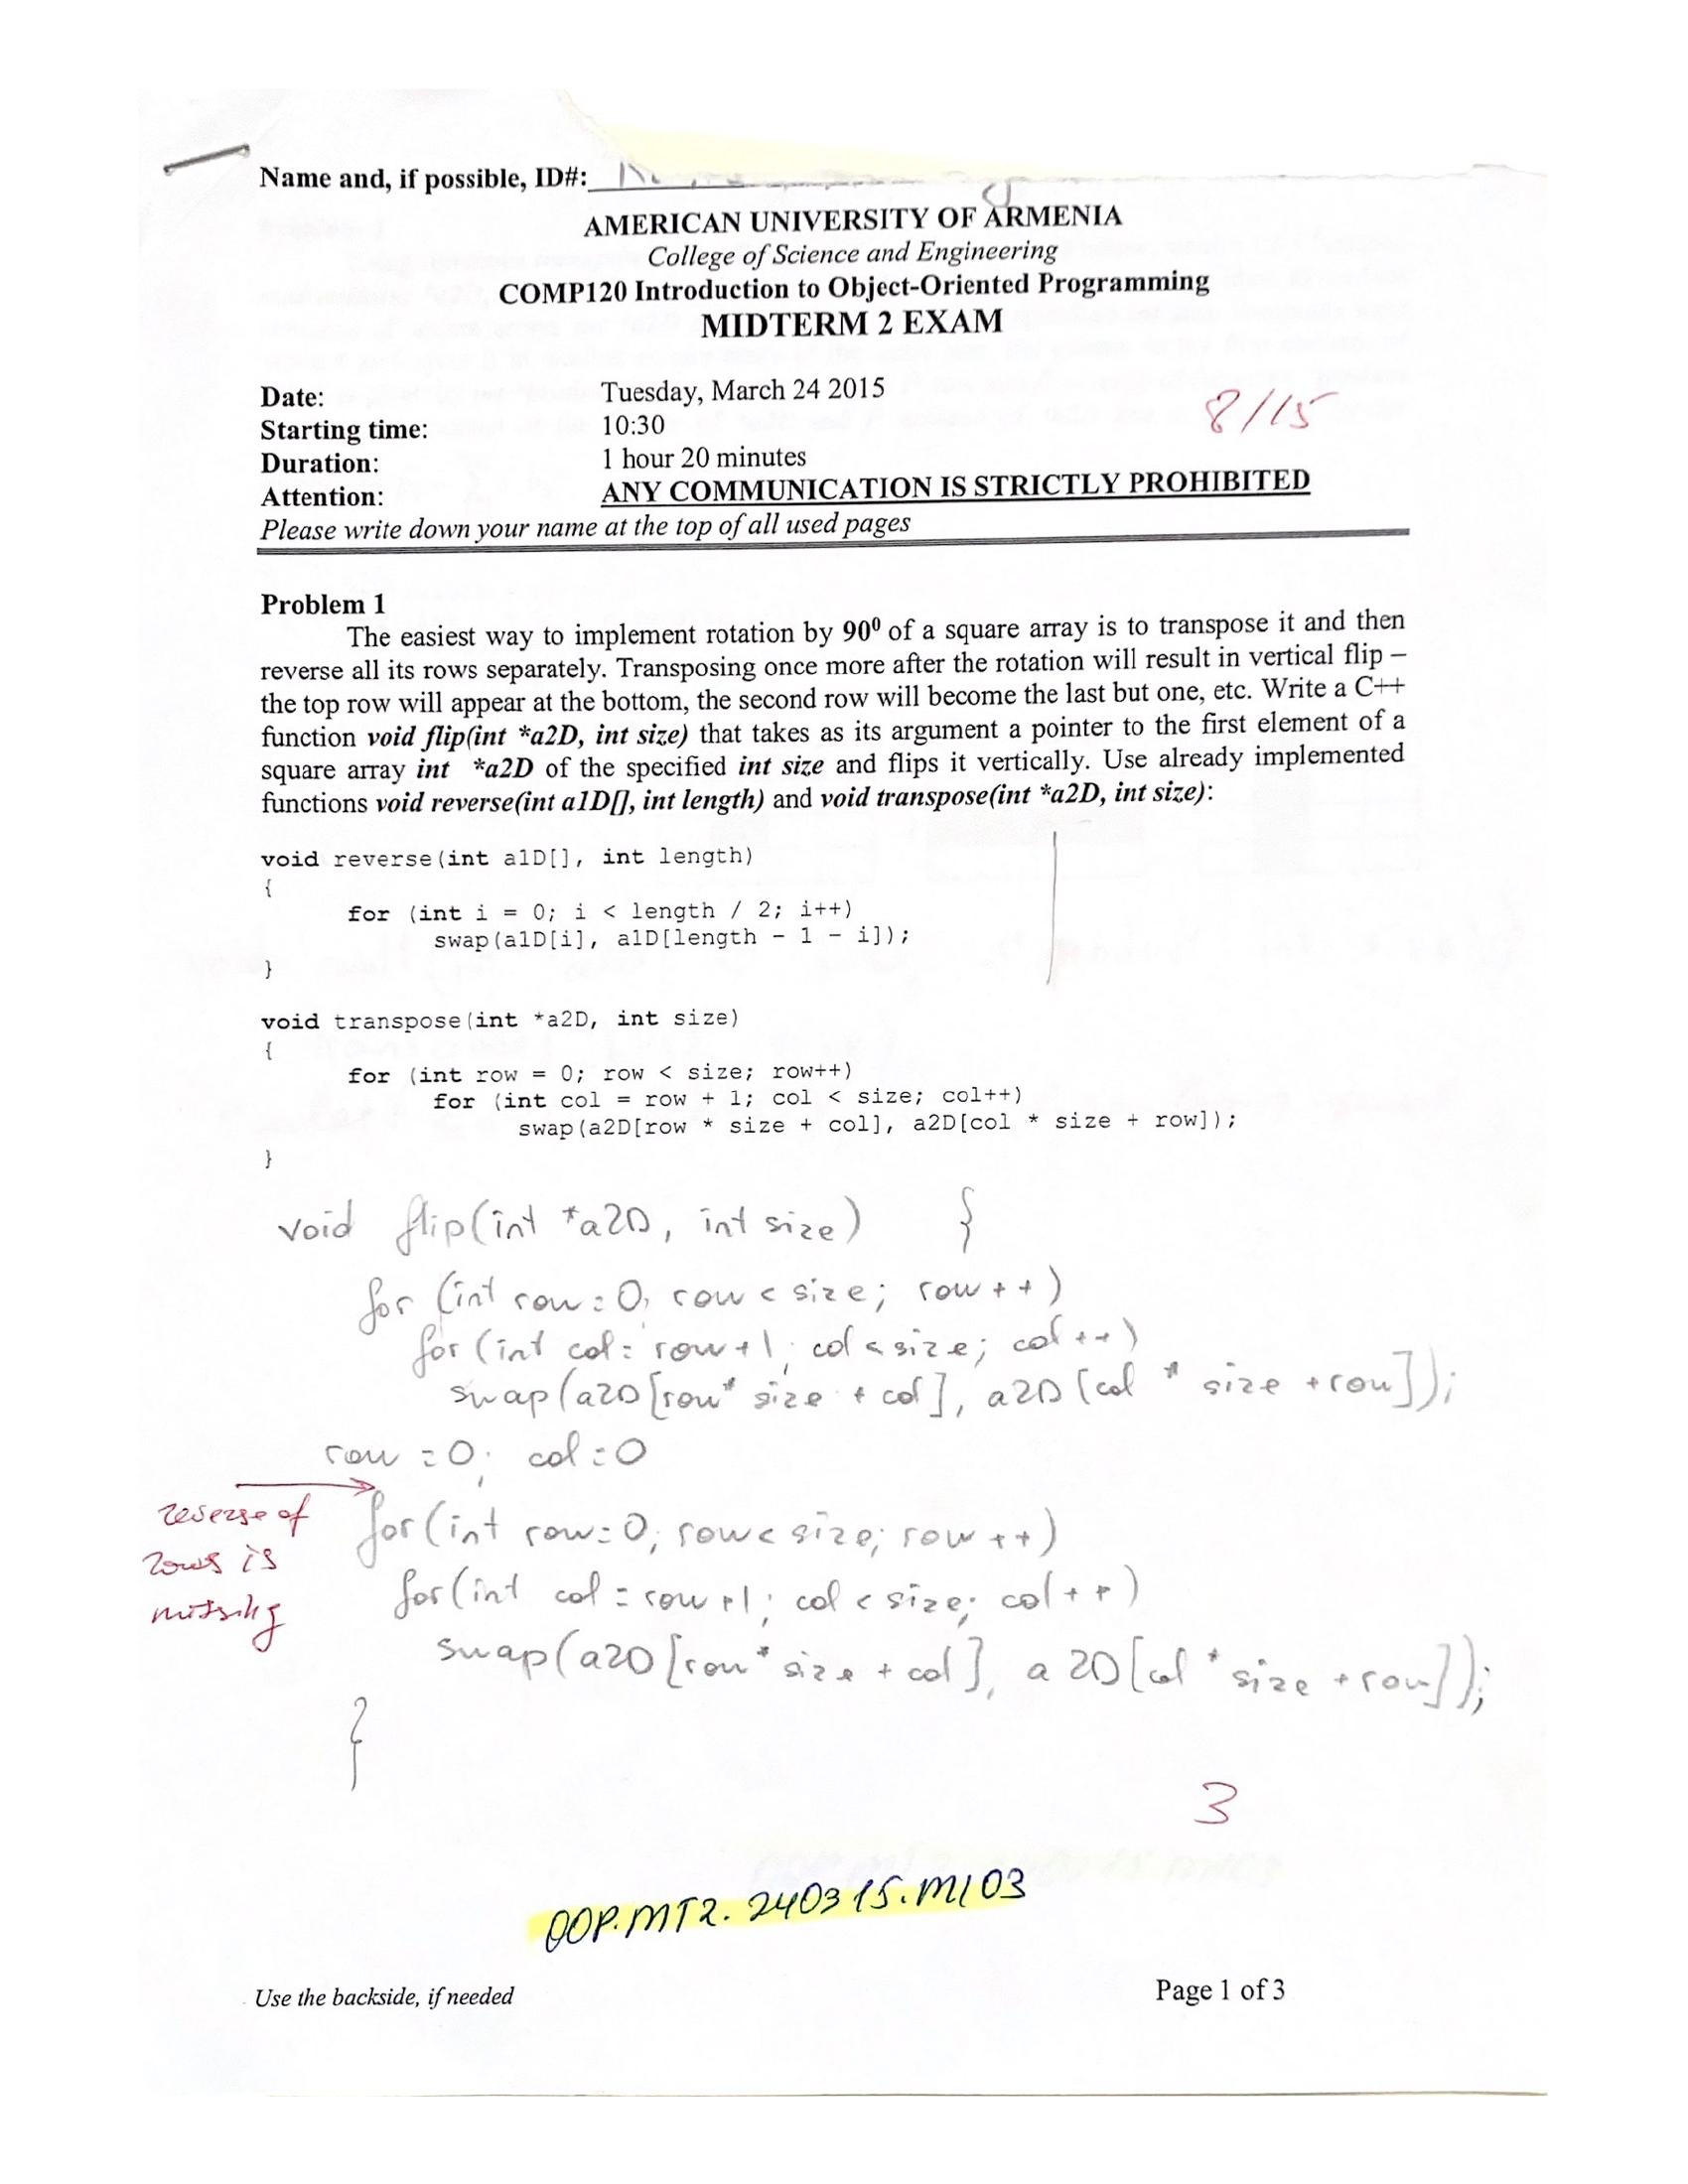 Name and, if possible, ID#:
AMERICAN UNIVERSITY OF ARMENIA
College of Science and Engineering
COMP120 Introduction to Object-Oriented Programming
MIDTERM 2 EXAM
Date: Tuesday, March 24 2015
8/15
Starting time: 10:30
Duration: 1 hour 20 minutes
Attention: ANY COMMUNICATION IS STRICTLY PROHIBITED
Please write down your name at the top of all used pages
Problem 1
The easiest way to implement rotation by 90⁰ of a square array is to transpose it and then
reverse all its rows separately. Transposing once more after the rotation will result in vertical flip –
the top row will appear at the bottom, the second row will become the last but one, etc. Write a C++
function void flip(int *a2D, int size) that takes as its argument a pointer to the first element of a
square array int *a2D of the specified int size and flips it vertically. Use already implemented
functions void reverse(int a1D[], int length) and void transpose(int *a2D, int size):
void reverse(int a1D[], int length)
{
for (int i = 0; i < length / 2; i++)
swap(a1D[i], a1D[length - 1 - i]);
}
void transpose(int *a2D, int size)
{
for (int row = 0; row < size; row++)
for (int col = row + 1; col < size; col++)
swap(a2D[row * size + col], a2D[col * size + row]);
}
void flip(int *a2D, int size) {
for (int row = 0; row < size; row++)
for (int col = row+1; col < size; col++)
swap(a2D[row* size + col], a2D[col * size + row]);
row = 0; col = 0
for (int row = 0; row < size; row++)
for (int col = row+1; col < size; col++)
swap(a2D[row* size + col], a2D[col * size + row]);
}
reverse of
rows is
missing
3
OOP.MT2.240315.M103
Use the backside, if needed
Page 1 of 3